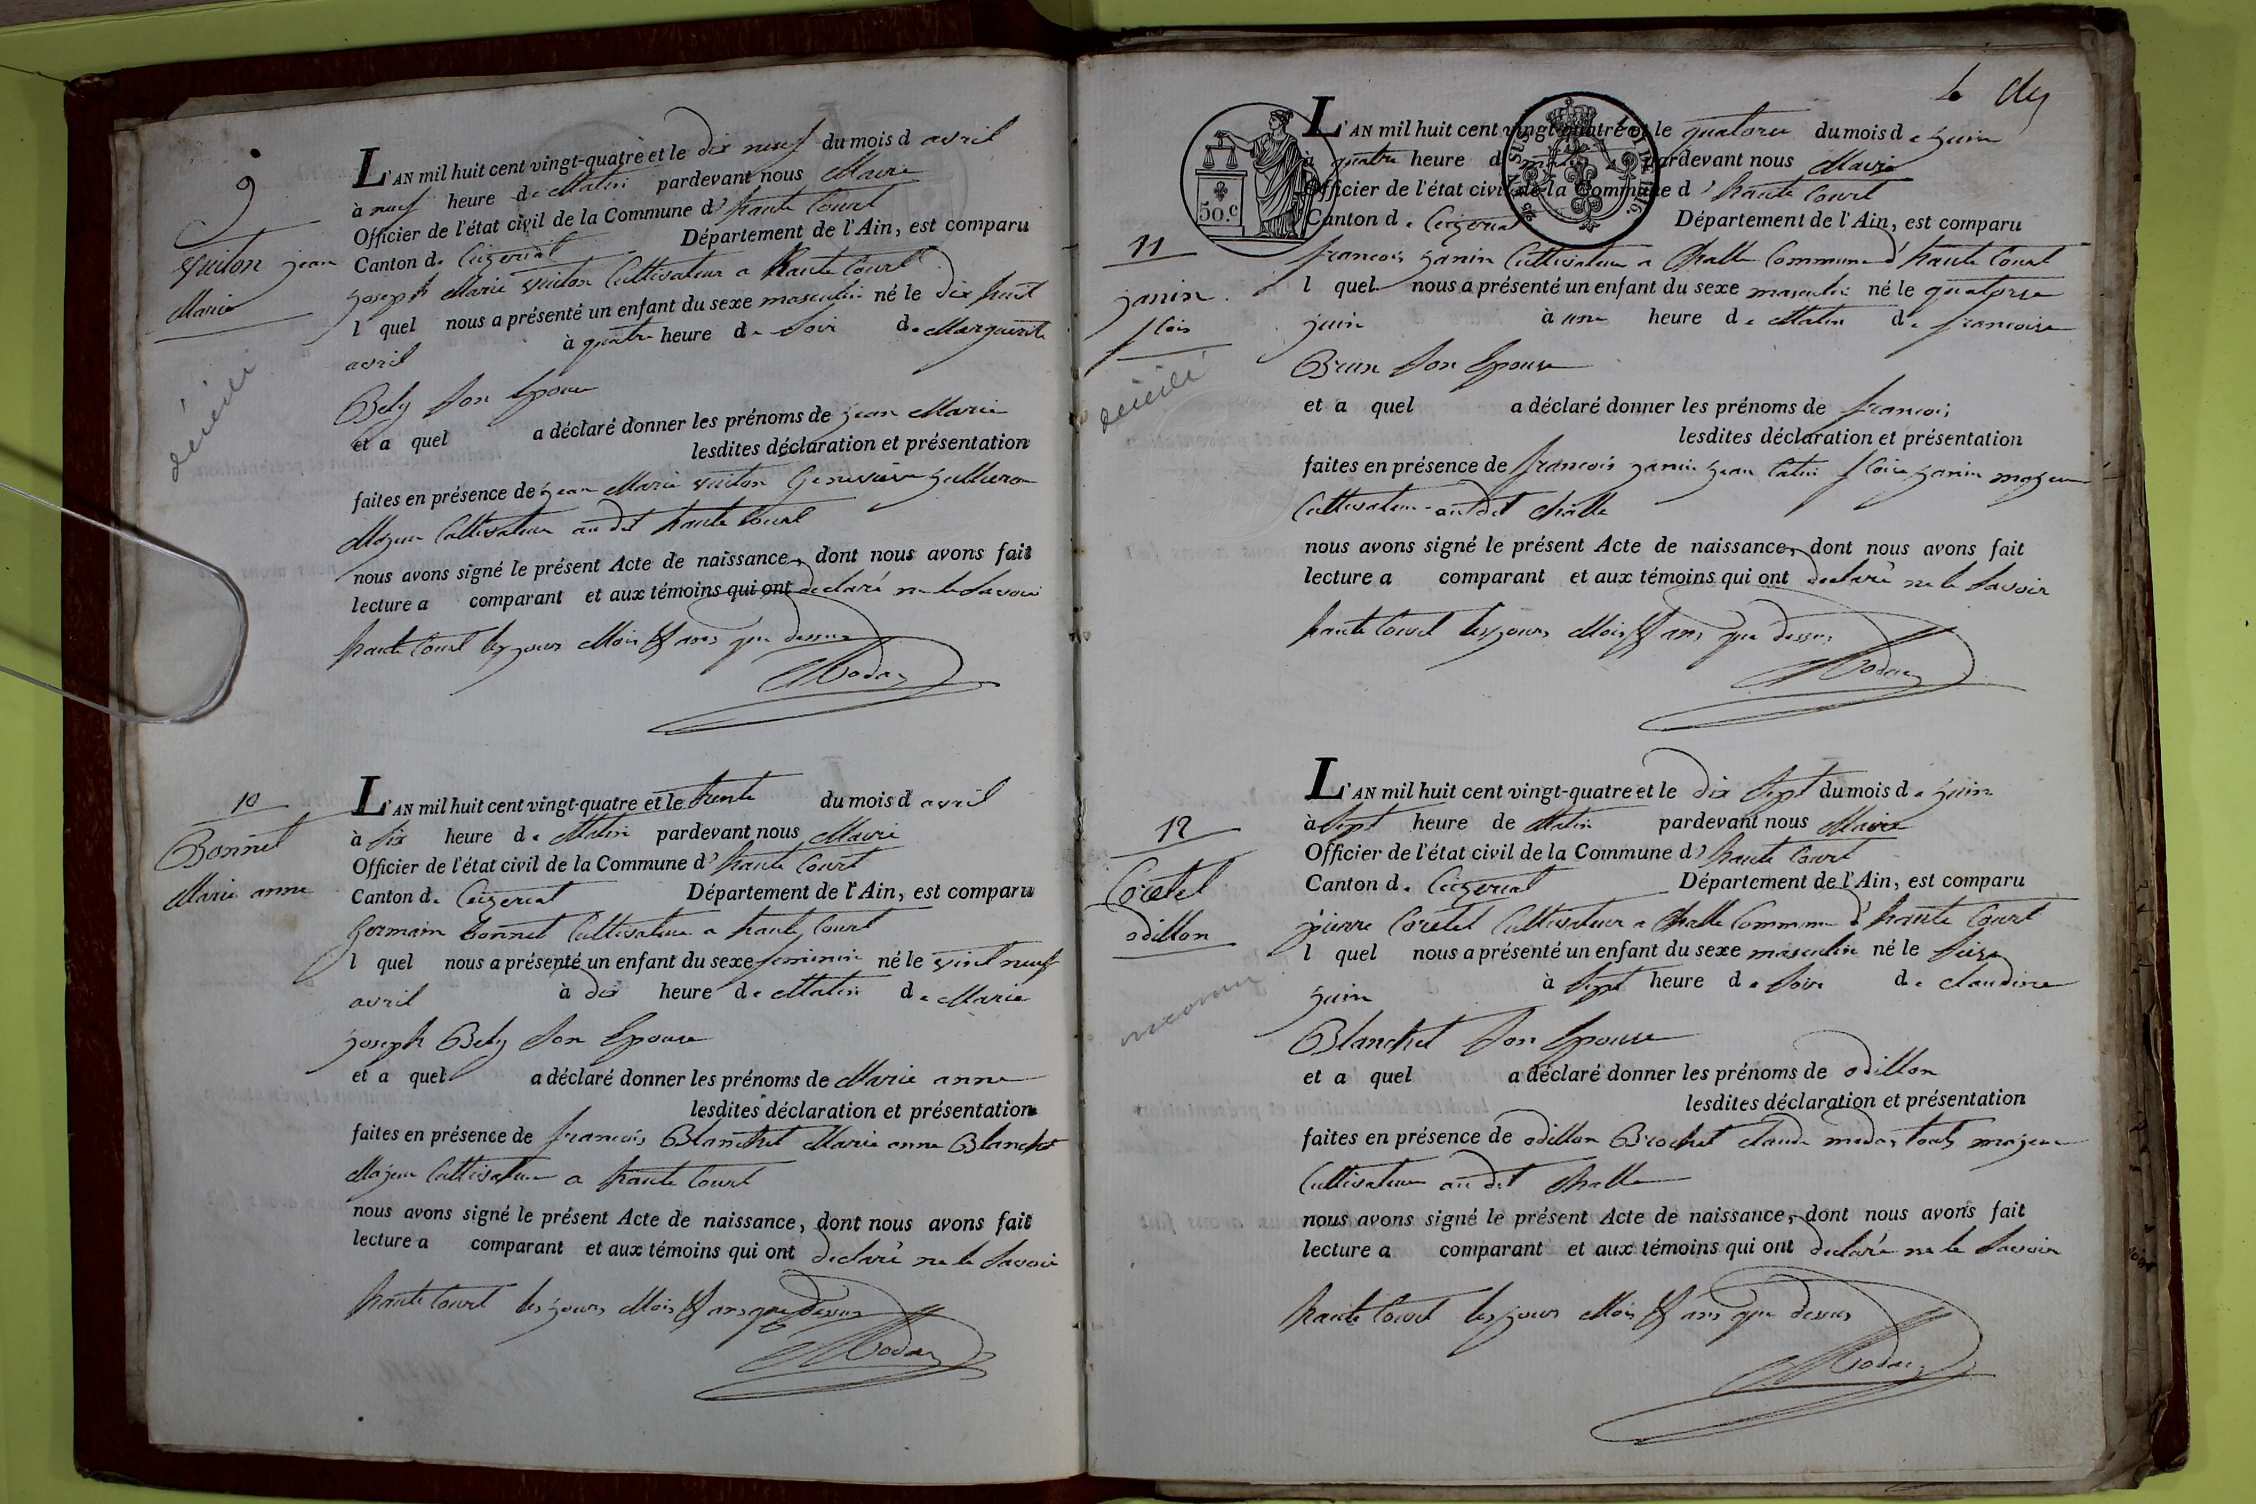 9
vuiton jean
Marie
décédé
L'AN mil huit cent vingt-quatre et le dix neuf du mois d avril
à neuf heure de Matin pardevant nous Maire
Officier de l'état civil de la Commune d'haute Court
Canton de Ceizeriat Département de l'Ain, est comparu
joseph Marie vuiton Cultivateur a haute Court
l quel nous a présenté un enfant du sexe masculin né le dix huit
avril à quatre heure de Soir de Marguerite
Bely Son Epouse
et a quel a déclaré donner les prénoms de jean Marie
lesdites déclaration et présentation
faites en présence de jean Marie vuiton Genevieve
Majeur Cultivateur au dit haute Court
nous avons signé le présent Acte de naissance, dont nous avons fait
lecture a comparant et aux témoins qui ont declaré ne le Savoir
haute Court les jours Mois & ans que dessus
10
Bonnet
Marie anne
L'AN mil huit cent vingt-quatre et le trente du mois d avril
à Six heure de Matin pardevant nous Maire
Officier de l'état civil de la Commune d'haute Court
Canton de Ceizeriat Département de l'Ain, est comparu
germain bonnet Cultivateur a haute Court
l quel nous a présenté un enfant du sexe feminin né le vint neuf
avril à dix heure de Matin de Marie
joseph Bely Son Epouse
et a quel a déclaré donner les prénoms de Marie anne
lesdites déclaration et présentation
faites en présence de francois Blanchet Marie anne Blanchet
Majeur Cultivateur a haute Court
nous avons signé le présent Acte de naissance, dont nous avons fait
lecture a comparant et aux témoins qui ont declaré ne le Savoir
haute Court les jours Mois & ans que dessus
50.c
11
janin
fcois
décédé
L'AN mil huit cent vingt-quatre et le quatorze du mois de juin
à quatre heure d pardevant nous Maire
Officier de l'état civil de la Commune d'haute Court
Canton de Ceizeriat Département de l'Ain, est comparu
francois janin Cultivateur a Challe Commune d'haute Court
l quel nous a présenté un enfant du sexe masculin né le quatorse
juin à une heure de Matin de francoise
Brun Son Epouse
et a quel a déclaré donner les prénoms de francois
lesdites déclaration et présentation
faites en présence de francois janin jean janin majeur
Cultivateur au dit Challe
nous avons signé le présent Acte de naissance, dont nous avons fait
lecture a comparant et aux témoins qui ont declaré ne le Savoir
haute Court les jours Mois & ans que dessus
12
Coretel
odillon
L'AN mil huit cent vingt-quatre et le dix Sept du mois de juin
à Sept heure de Matin pardevant nous Maire
Officier de l'état civil de la Commune d'haute Court
Canton de Ceizeriat Département de l'Ain, est comparu
pierre Coretel Cultivateur a Challe Commune d'haute Court
l quel nous a présenté un enfant du sexe masculin né le Seize
juin à Sept heure de Soir de claudine
Blanchet Son Epouse
et a quel a déclaré donner les prénoms de odillon
lesdites déclaration et présentation
faites en présence de odillon Brochet claude touts majeur
Cultivateur au dit Challe
nous avons signé le présent Acte de naissance, dont nous avons fait
lecture a comparant et aux témoins qui ont declaré ne le Savoir
haute Court les jours Mois & ans que dessus